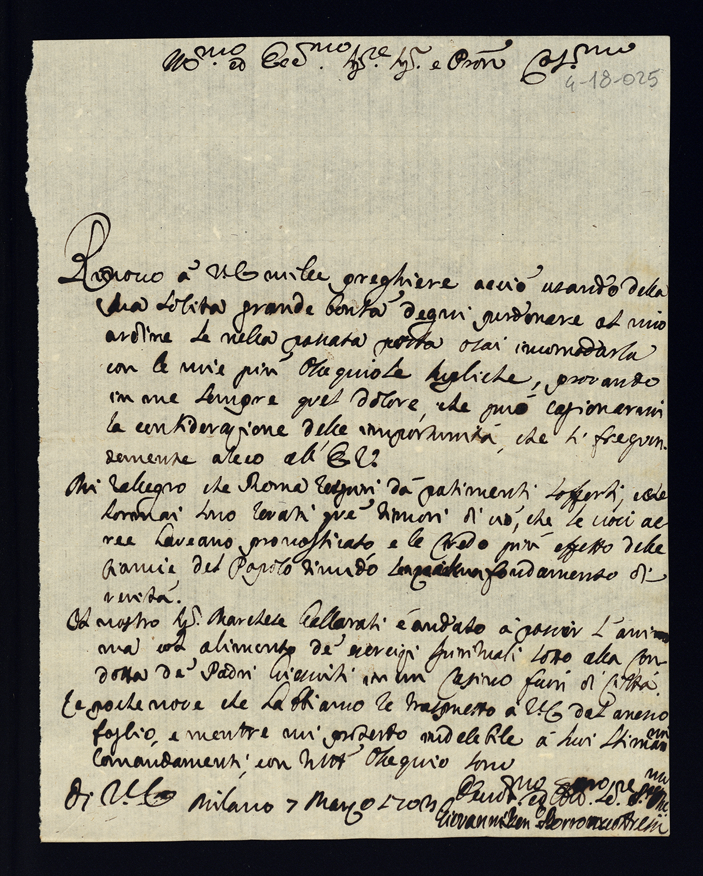 Ill.mo ed Ecc.mo Sig.re Sig.r e Pron Col.mo
4-18-025
Rinovo à V.E. mille preghiere acciò usando della
sua solita grande bontà degni perdonare al mio
ardire se nella passata posta osai incomodarla
con le mie più ossequiose suppliche, provando
in me sempre quel dolore, che può cagionarmi
la consideratione delle importunità, che sì frequen-
temente reco all' E.V.
Mi rallegro che Roma respiri da patimenti sofferti, e che
sono levati que timori di ciò, che le voci ae-
ree haveano pronosticato e le credo più effetto delle
del Popolo fondamento di
verità.
Il nostro Sig.r Marchese Gallarati è andato à pascer l'ani-
ma col alimento de esercizi spirituali sotto alla con-
dotta de Padri Giesuiti in un Casino fuori di Città.
Le poche nove che habbiamo le trasmetto a V.E. dal annesso
foglio, e mentre mi protesto indelebile à suoi stimatmi
comandamenti, con tutto Ossequio sono
Di V.E. Milano 7 Marzo 1703
Devot.mo ed Obb.
Giovanni Borromeo Aresi